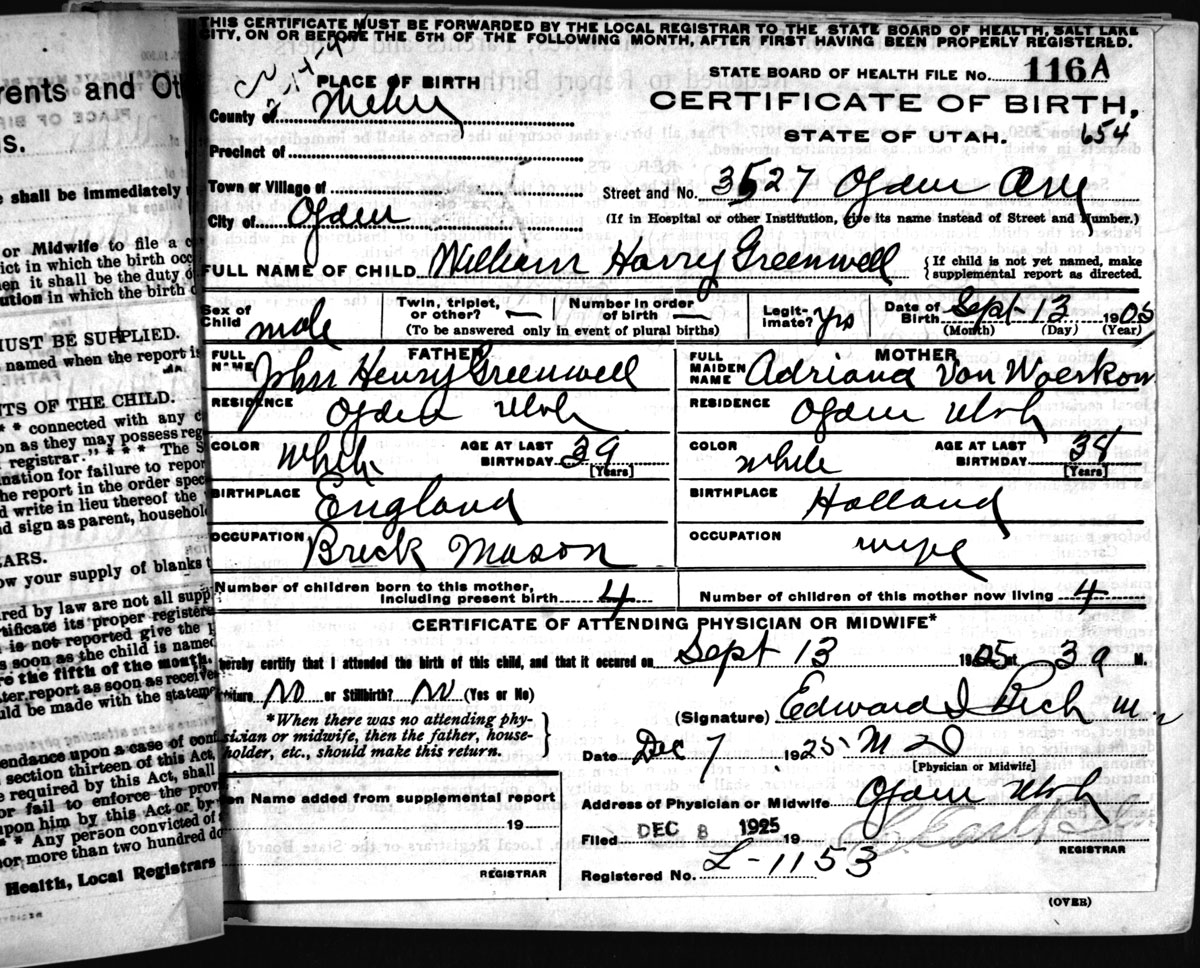 THIS CERTIFICATE MUST BE FORWARDED BY THE LOCAL REGISTRAR TO THE STATE BOARD OF HEALTH, SALT LAKE
CITY, ON OR BEFORE THE 5TH OF THE FOLLOWING MONTH, AFTER FIRST HAVING BEEN PROPERLY REGISTERED.
STATE BOARD OF HEALTH FILE No. 116A
CERTIFICATE OF BIRTH,
STATE OF UTAH. 654
PLACE OF BIRTH
County of
Precinct of
Town or Village of
City of Ogden
Street and No. 3527 Ogden Ave
(If in Hospital or other Institution, give its name instead of Street and Number.)
FULL NAME OF CHILD William Harry Greenwell
{If child is not yet named, make
supplemental report as directed.
Sex of Child male
Twin, triplet, or other? —
Number in order of birth —
(To be answered only in event of plural births)
Legitimate? yes
Date of Birth Sept 13 1905
(Month) (Day) (Year)
FATHER
FULL NAME John Henry Greenwell
RESIDENCE Ogden Utah
COLOR White
AGE AT LAST BIRTHDAY 39 [Years]
BIRTHPLACE England
OCCUPATION Brick Mason
MOTHER
FULL MAIDEN NAME Adriana Van Woerkom
RESIDENCE Ogden Utah
COLOR white
AGE AT LAST BIRTHDAY 38 [Years]
BIRTHPLACE Holland
OCCUPATION wife
Number of children born to this mother,
including present birth 4
Number of children of this mother now living 4
CERTIFICATE OF ATTENDING PHYSICIAN OR MIDWIFE*
hereby certify that I attended the birth of this child, and that it occured on Sept 13 1905 at 3 a M.
No or Stillbirth? No (Yes or No)
*When there was no attending phy-
sician or midwife, then the father, house-
holder, etc., should make this return.
(Signature) Edward I Rich
Date Dec 7 1925. M D
[Physician or Midwife]
Address of Physician or Midwife Ogden Utah
Name added from supplemental report
19
REGISTRAR
Filed DEC 8 1925 19
REGISTRAR
Registered No. L-1153
(OVER)
rents and
s.
e shall be immediately
or Midwife to file a
ict in which the birth
en it shall be the duty
ution in which the birth
MUST BE SUPPLIED.
named when the report is
NTS OF THE CHILD.
* * connected with any
on as they may possess
registrar." * * * The
ination for failure to
he report in the order
d write in lieu thereof the
nd sign as parent,
EARS.
ow your supply of blanks
red by law are not all
tificate its proper
is not reported give the
s soon as the child is named
re the fifth of the month.
ter report as soon as
uld be made with the
endance upon a case of
section thirteen of this Act,
e required by this Act, shall
or fail to enforce the
upon him by this Act or by
* * Any person convicted of
nor more than two hundred
Health, Local Registrars